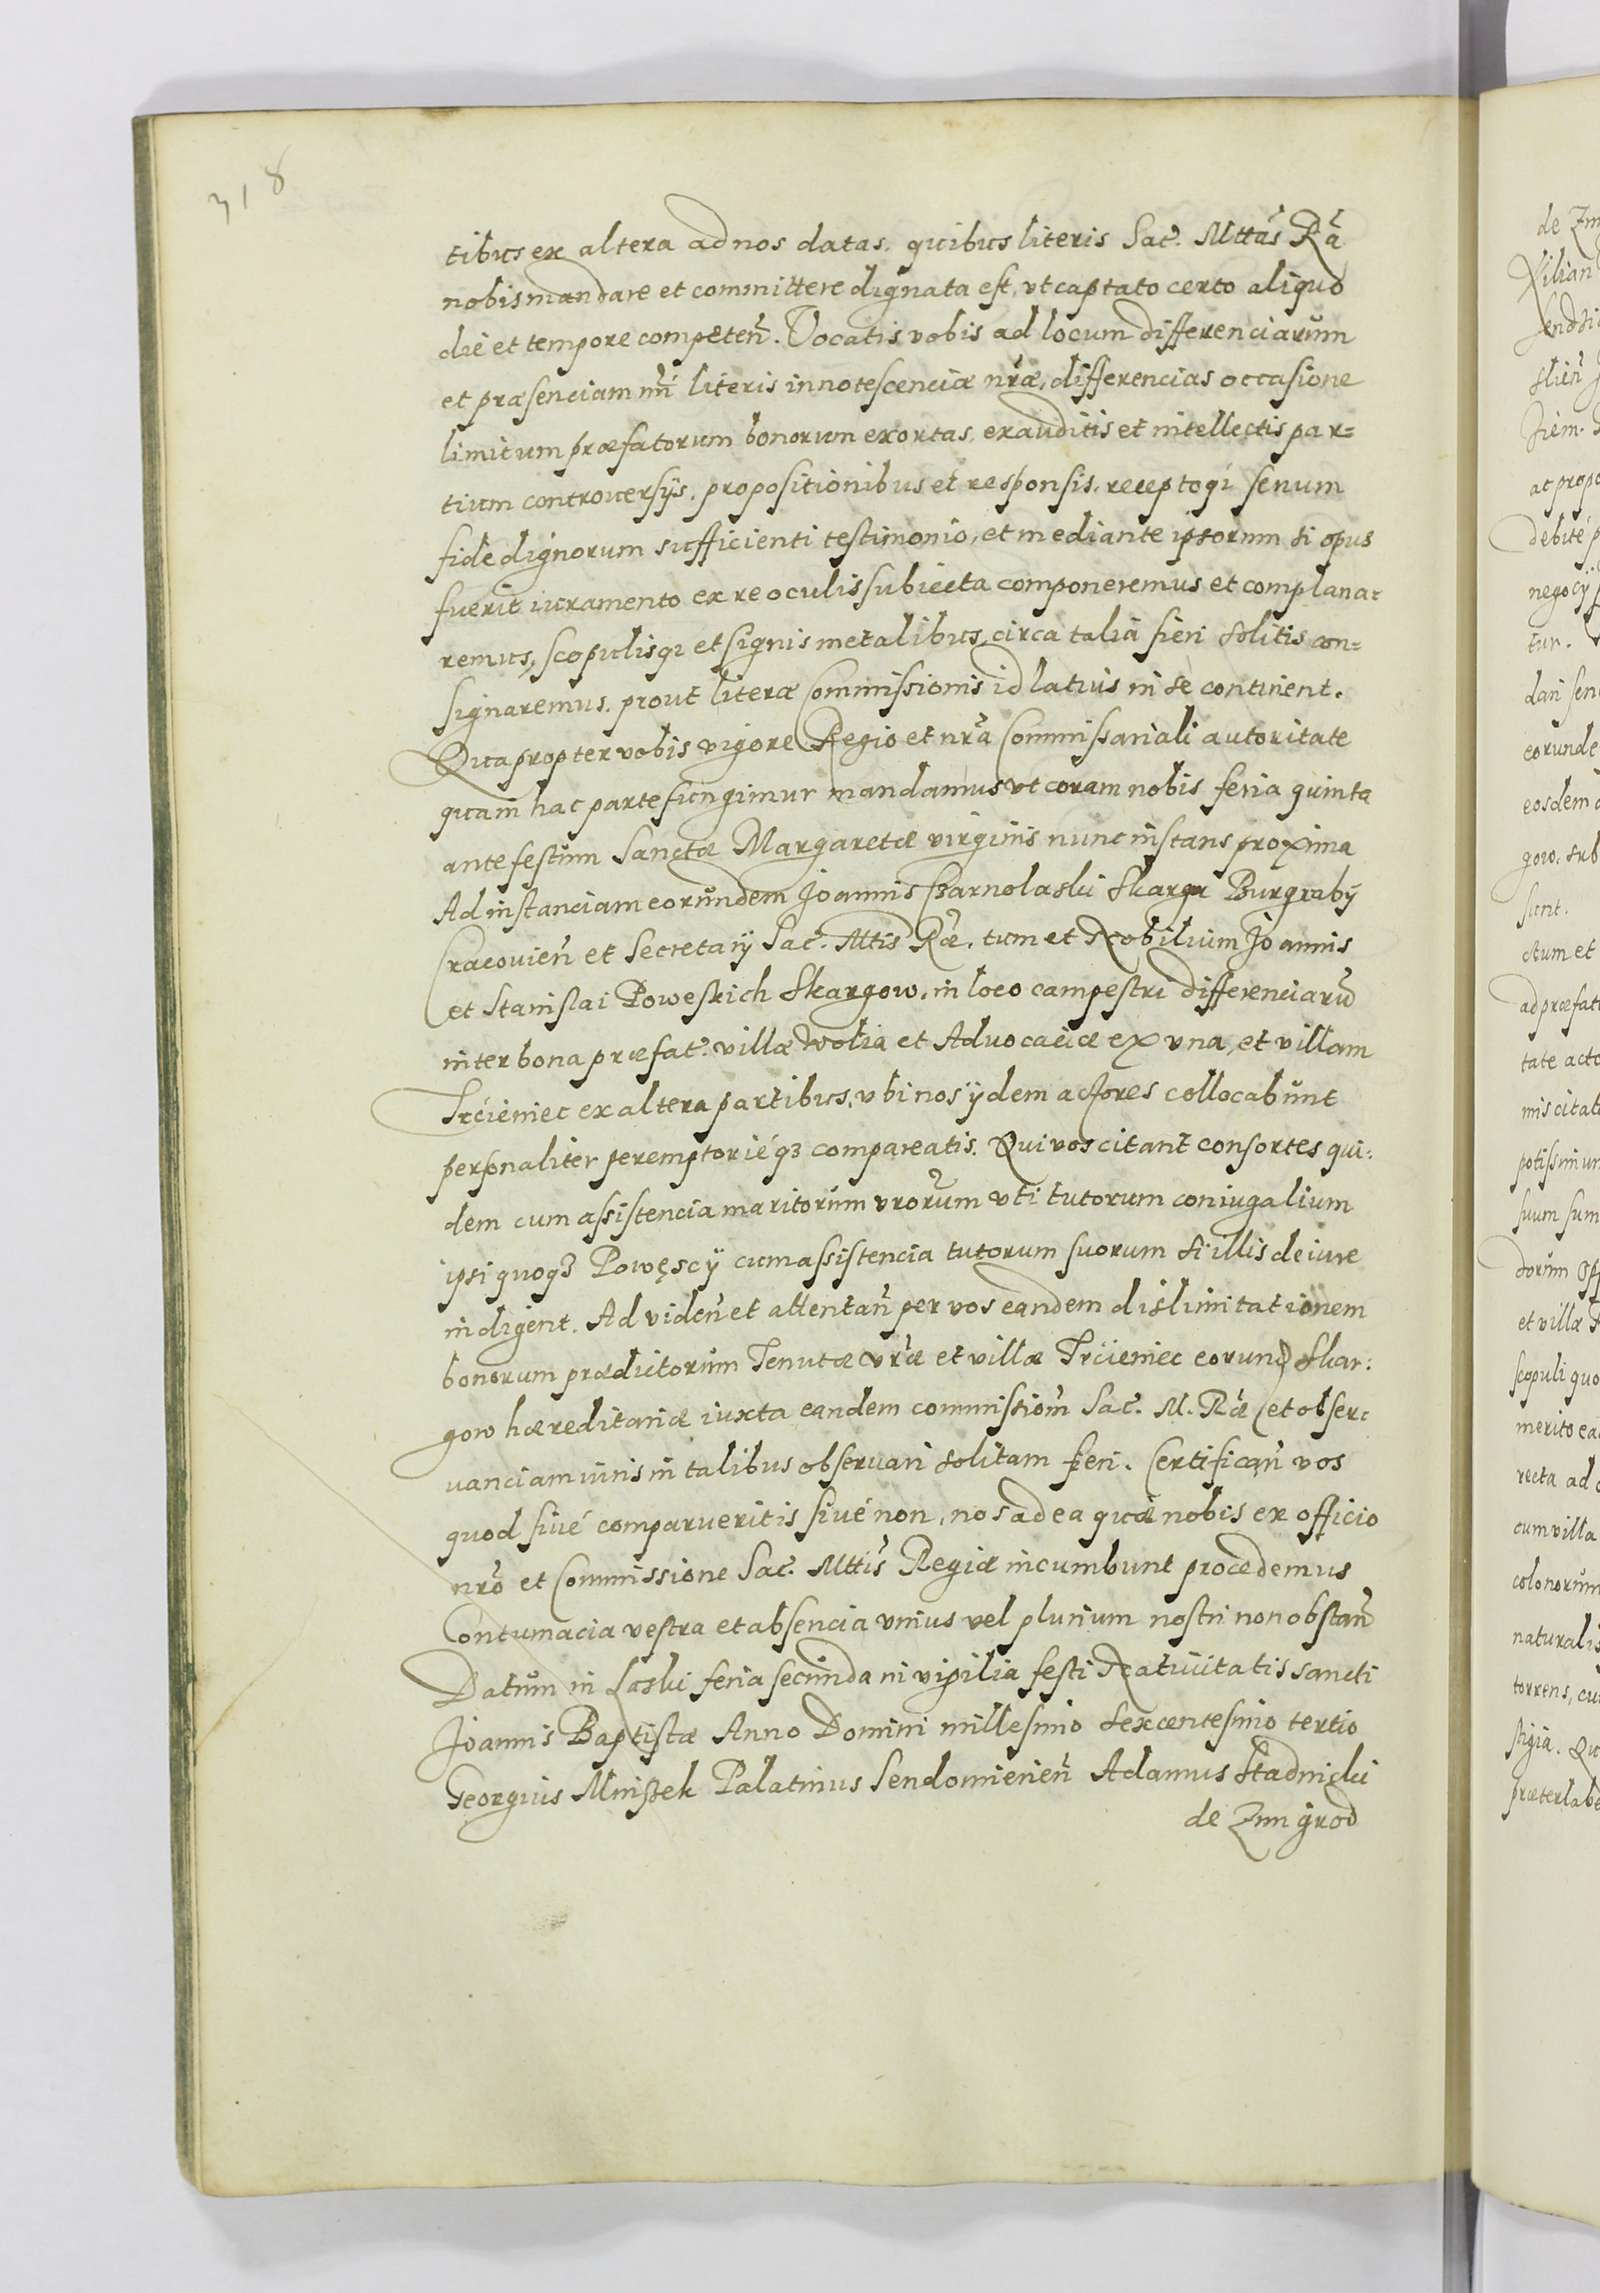 318
tibus ex altera ad nos datas. quibus literis Sac. Mttas Ra
nobis mandare et committere dignata est, vt captato certo aliquo
die et tempore competen. Vocatis vobis ad locum differenciarum
et præsenciam literis innotescenciæ nræ, differencias occasione
limitum præfatorum bonorum exortas, exauditis et intellectis par=
tium controuersijs, propositionibus et responsis, receptoq; senum
fide dignorum sufficienti testimonio, et mediante ipsorum si opus
fuerit iuramento ex re oculis subiecta componeremus et complana=
remus, scopulisq; et signis metalibus, circa talia fieri solitis con=
signaremus. prout literæ Commissionis id latius in se continent.
Quapropter vobis vigore Regio et nra Commissariali autoritate
qua in hac parte fungimur mandamus vt coram nobis feria quinta
ante festum Sanctæ Margaretæ virginis nunc instans proxima
Ad instanciam eorundem Joannis Czarnolaski Skarga Burgrabij
Cracouien et Secretarij Sac. Mttis Ræ. tum et Nobilium Joannis
et Stanislai Poweskich Skargow, in loco campestri differenciaru
inter bona præfat. villæ Wolia et Aduocaciæ ex vna, et villam
Trcieniec ex altera partibus, vbi nos ijdem actores collocabunt
personaliter peremptorié q3 compareatis. Qui vos citant consortes qui=
dem cum assistencia maritorum vrorum vti tutorum coniugalium
ipsi quoq3 Powęscy cum assistencia tutorum suorum si illis de iure
indigent. Ad viden et attentan per vos eandem dislimitationem
bonorum prædictorum Tenutæ vræ et villæ Trcieniec eorund Skar=
gow hæreditariæ iuxta eandem commission Sac. M. Ræ et obser=
uanciam iuris in talibus obseruari solitam fieri. Certifican vos
quod siué comparueritis siué non, nos ad ea quæ nobis ex officio
nro et Commissione Sac. Mttis Regiæ incumbunt procedemus
Contumacia vestra et absencia vnius vel plurium nostri non obstan
Datum in Laski feria secunda in vigilia festi Natiuitatis sancti
Joannis Baptistæ Anno Domini millesimo sexcentesimo tertio
Georgius Mniszek Palatinus Sendomirien Adamus Stadnicki
de Zmigrod